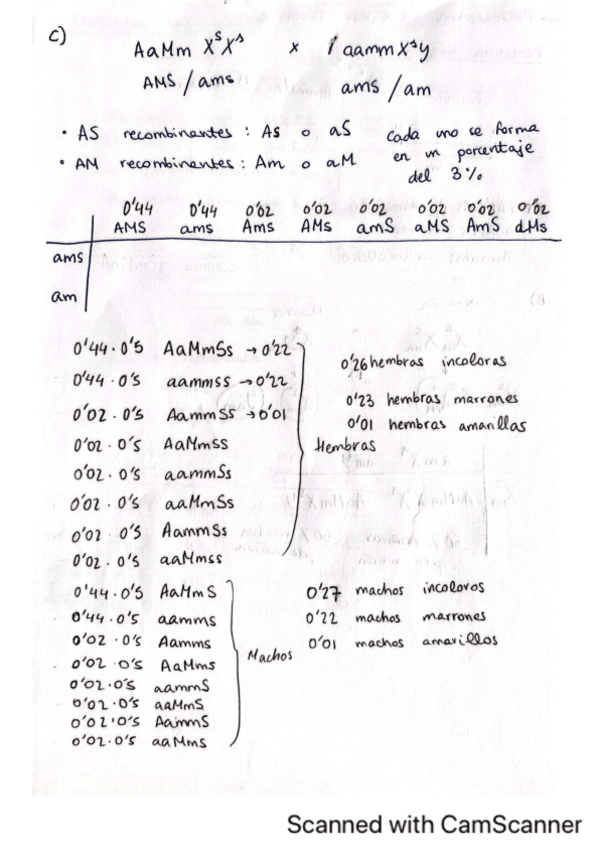 c)
AaMm XˢXˢ x aammXˢy
AMS / ams ams / am
• AS recombinantes : As o aS cada uno se forma
• AM recombinantes : Am o aM en un porcentaje
del 3%
0'44 0'44 0'02 0'02 0'02 0'02 0'02 0'02
AMS ams Ams AMs amS aMS AmS aMs
ams
am
0'44 · 0'5 AaMmSs → 0'22
0'44 · 0'5 aammss → 0'22
0'02 · 0'5 Aammss → 0'01
0'02 · 0'5 AaMmss
0'02 · 0'5 aammSs
0'02 · 0'5 aaMmSs
0'02 · 0'5 AammSs
0'02 · 0'5 aaMmss
Hembras
0'26 hembras incoloras
0'23 hembras marrones
0'01 hembras amarillas
0'44 · 0'5 AaMmS
0'44 · 0'5 aamms
0'02 · 0'5 Aamms
0'02 · 0'5 AaMms
0'02 · 0'5 aammS
0'02 · 0'5 aaMmS
0'02 · 0'5 AammS
0'02 · 0'5 aaMms
Machos
0'27 machos incoloros
0'22 machos marrones
0'01 machos amarillos
Scanned with CamScanner